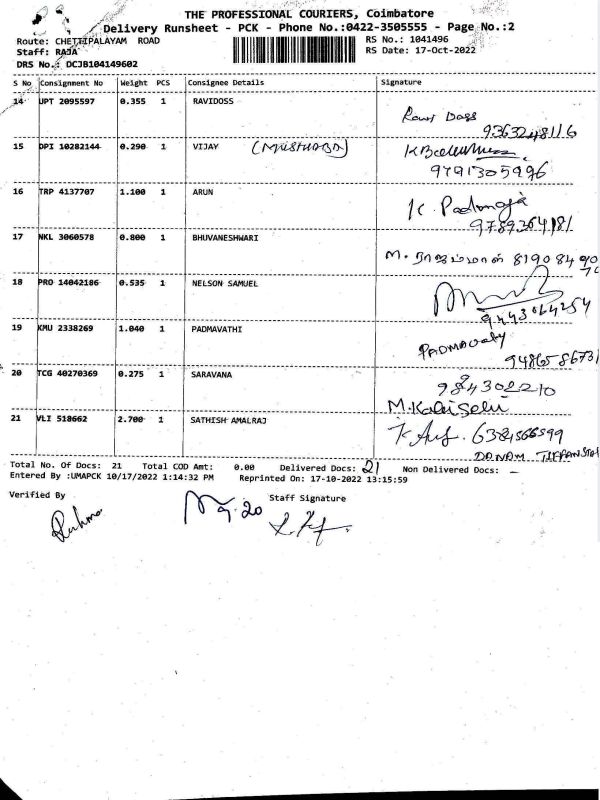 THE PROFESSIONAL COURIERS, Coimbatore
Delivery Runsheet - PCK - Phone No.:0422-3505555 - Page No.:2
Route: CHETTIPALAYAM ROAD RS No.: 1041496
Staff: RAJA RS Date: 17-Oct-2022
DRS No.: DCJB104149602
S No Consignment No Weight PCS Consignee Details Signature
14 UPT 2095597 0.355 1 RAVIDOSS Ravi Dass
9363248116
15 DPI 10282144 0.290 1 VIJAY
9791305996
16 TRP 4137707 1.100 1 ARUN K. Padmaja
9789264181
17 NKL 3060578 0.800 1 BHUVANESHWARI M. ராஜம்மாள் 81908490
18 PRO 14042186 0.535 1 NELSON SAMUEL
9443064254
19 KMU 2338269 1.040 1 PADMAVATHI PADMAvaty
9486586731
20 TCG 40270369 0.275 1 SARAVANA 984302210
M.Kalaiselvi
21 VLI 518662 2.700 1 SATHISH AMALRAJ 6384566599
Total No. Of Docs: 21 Total COD Amt: 0.00 Delivered Docs: 21 Non Delivered Docs: –
Entered By :UMAPCK 10/17/2022 1:14:32 PM Reprinted On: 17-10-2022 13:15:59
Verified By Staff Signature